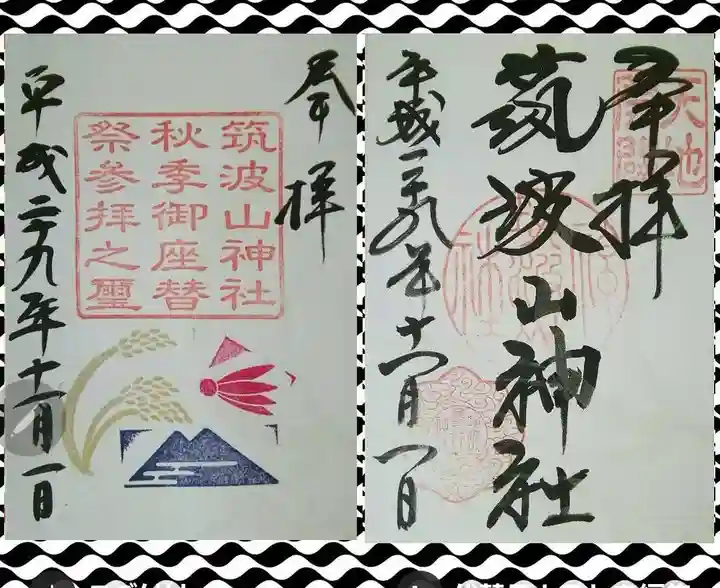 奉拝
筑波山神社
秋季御座替
祭参拝之璽
平成二十九年十一月一日
天地
開闢
奉拝
筑波山神社
平成二十九年十一月一日